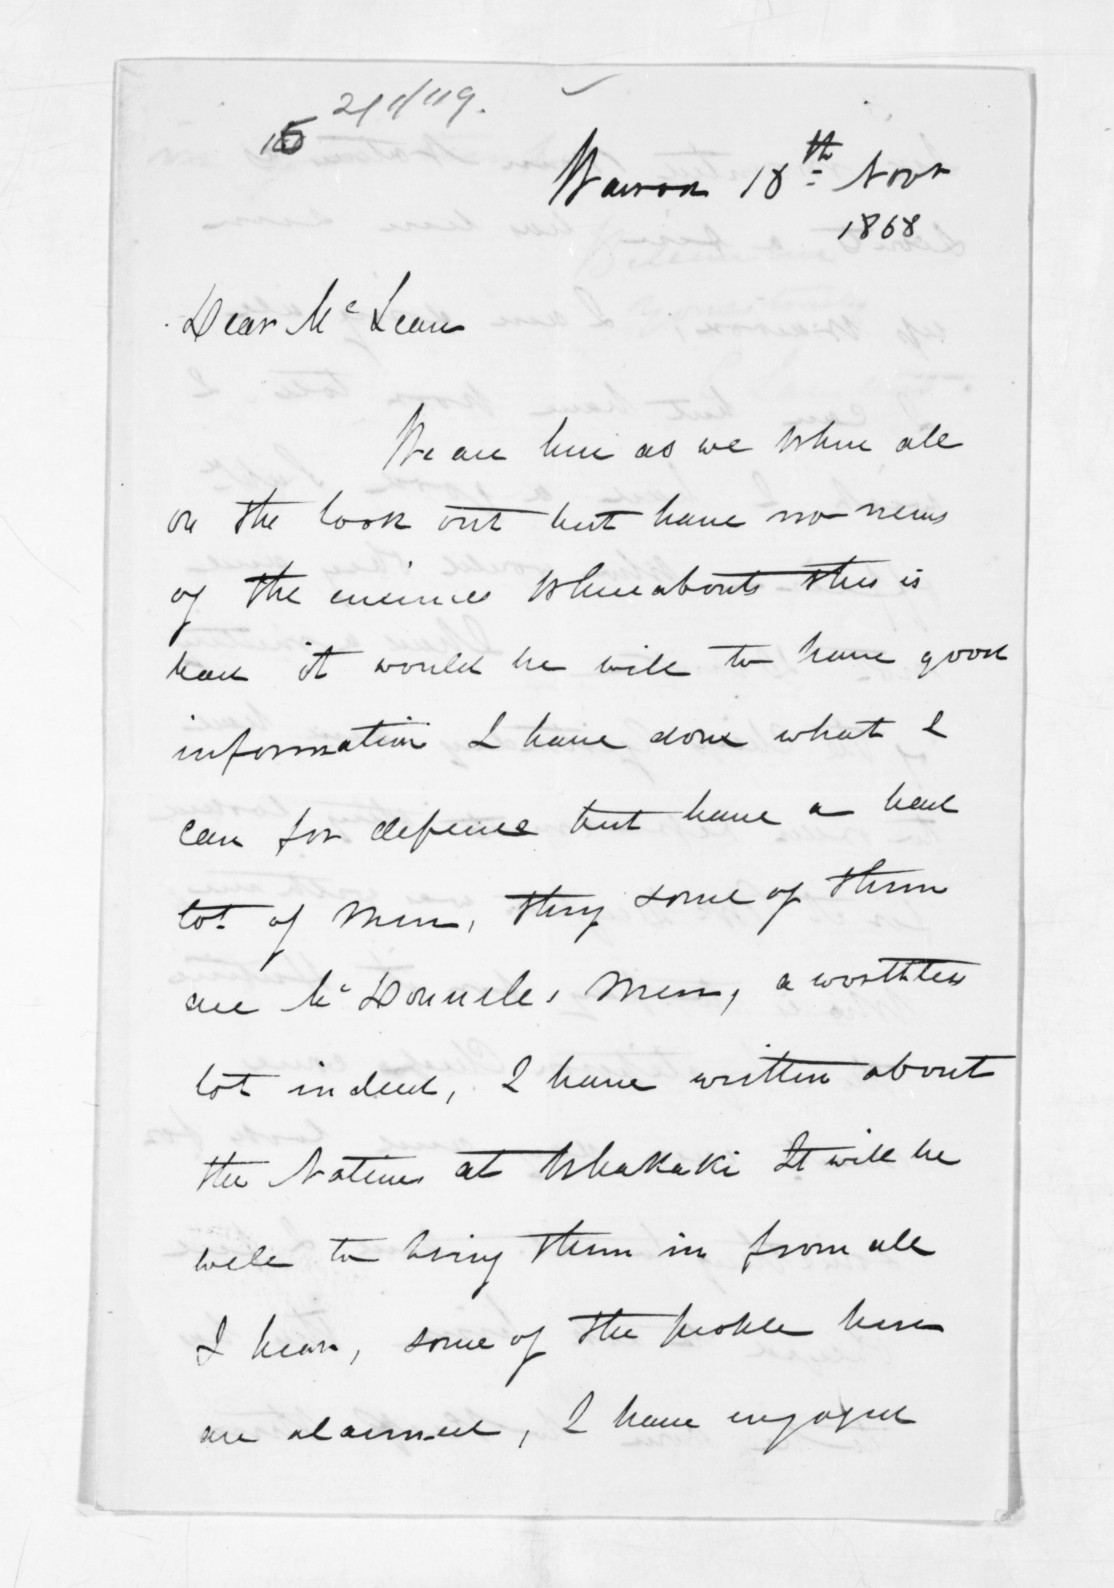 Wairoa 18th Novr
1868
Dear McLean
We are here as we where all
on the look out but have no news
of the enimes whereabouts this is
bad it would be well to have good
information I have done what I
can for defence but have a bad
lot of men, they some of them
are McDonnels men, a worthless
lot indeed, I have written about
the Natives at Whakaki It will be
well to bring them in from all
I hear, some of the people here
are alarmed, I have engaged